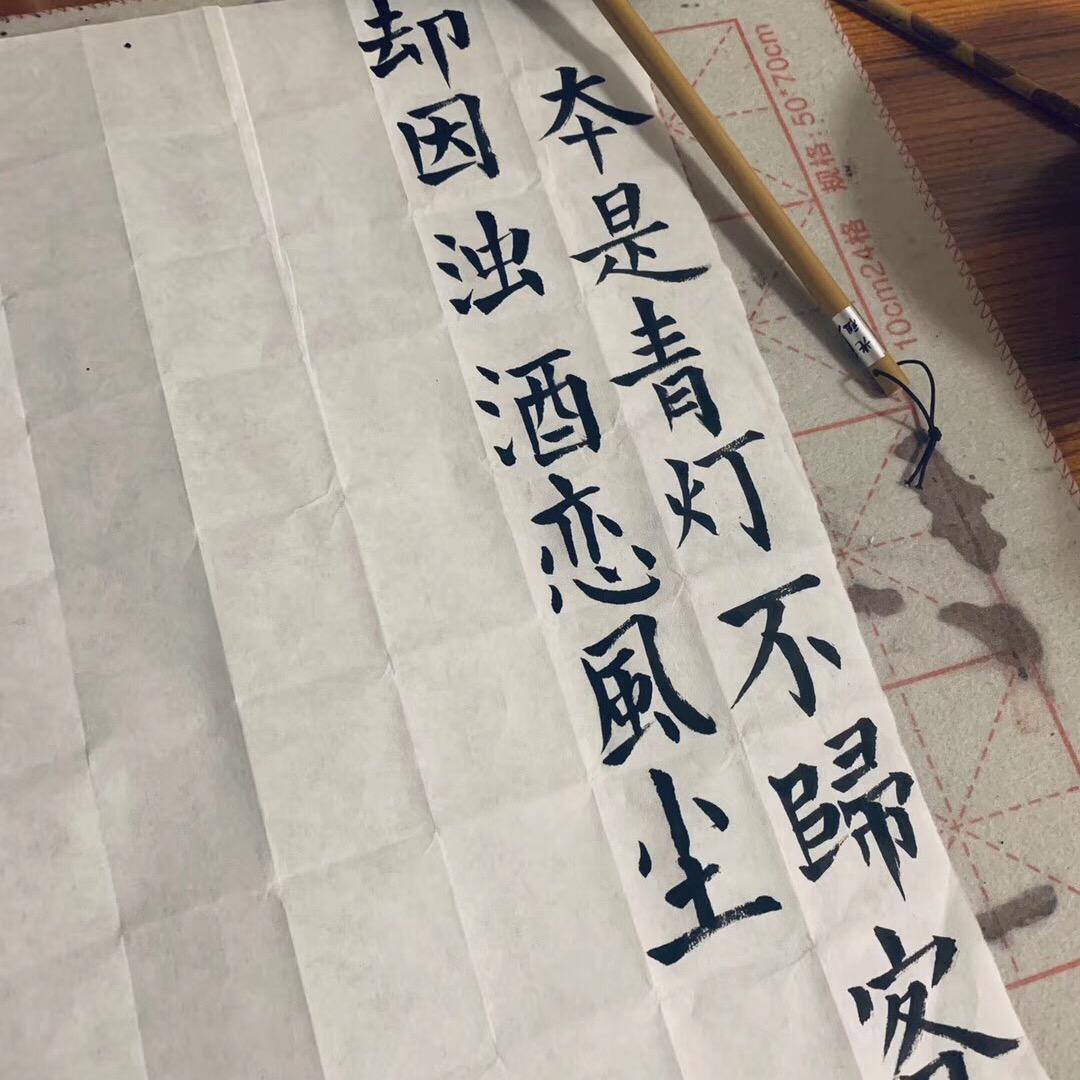 本是青灯不歸客
却因浊酒恋風尘
规格:50*70cm
10cm24格